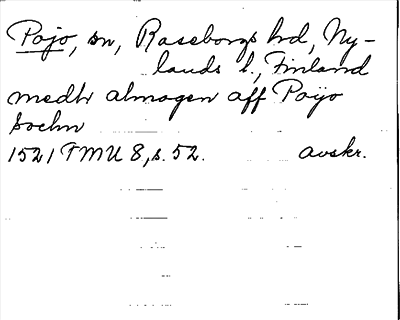 Pojo, sn, Raseborgs hrd, Ny-
lands l., Finland
medh almogen aff Poÿo
sochn
1521 FMU 8, s. 52. avskr.